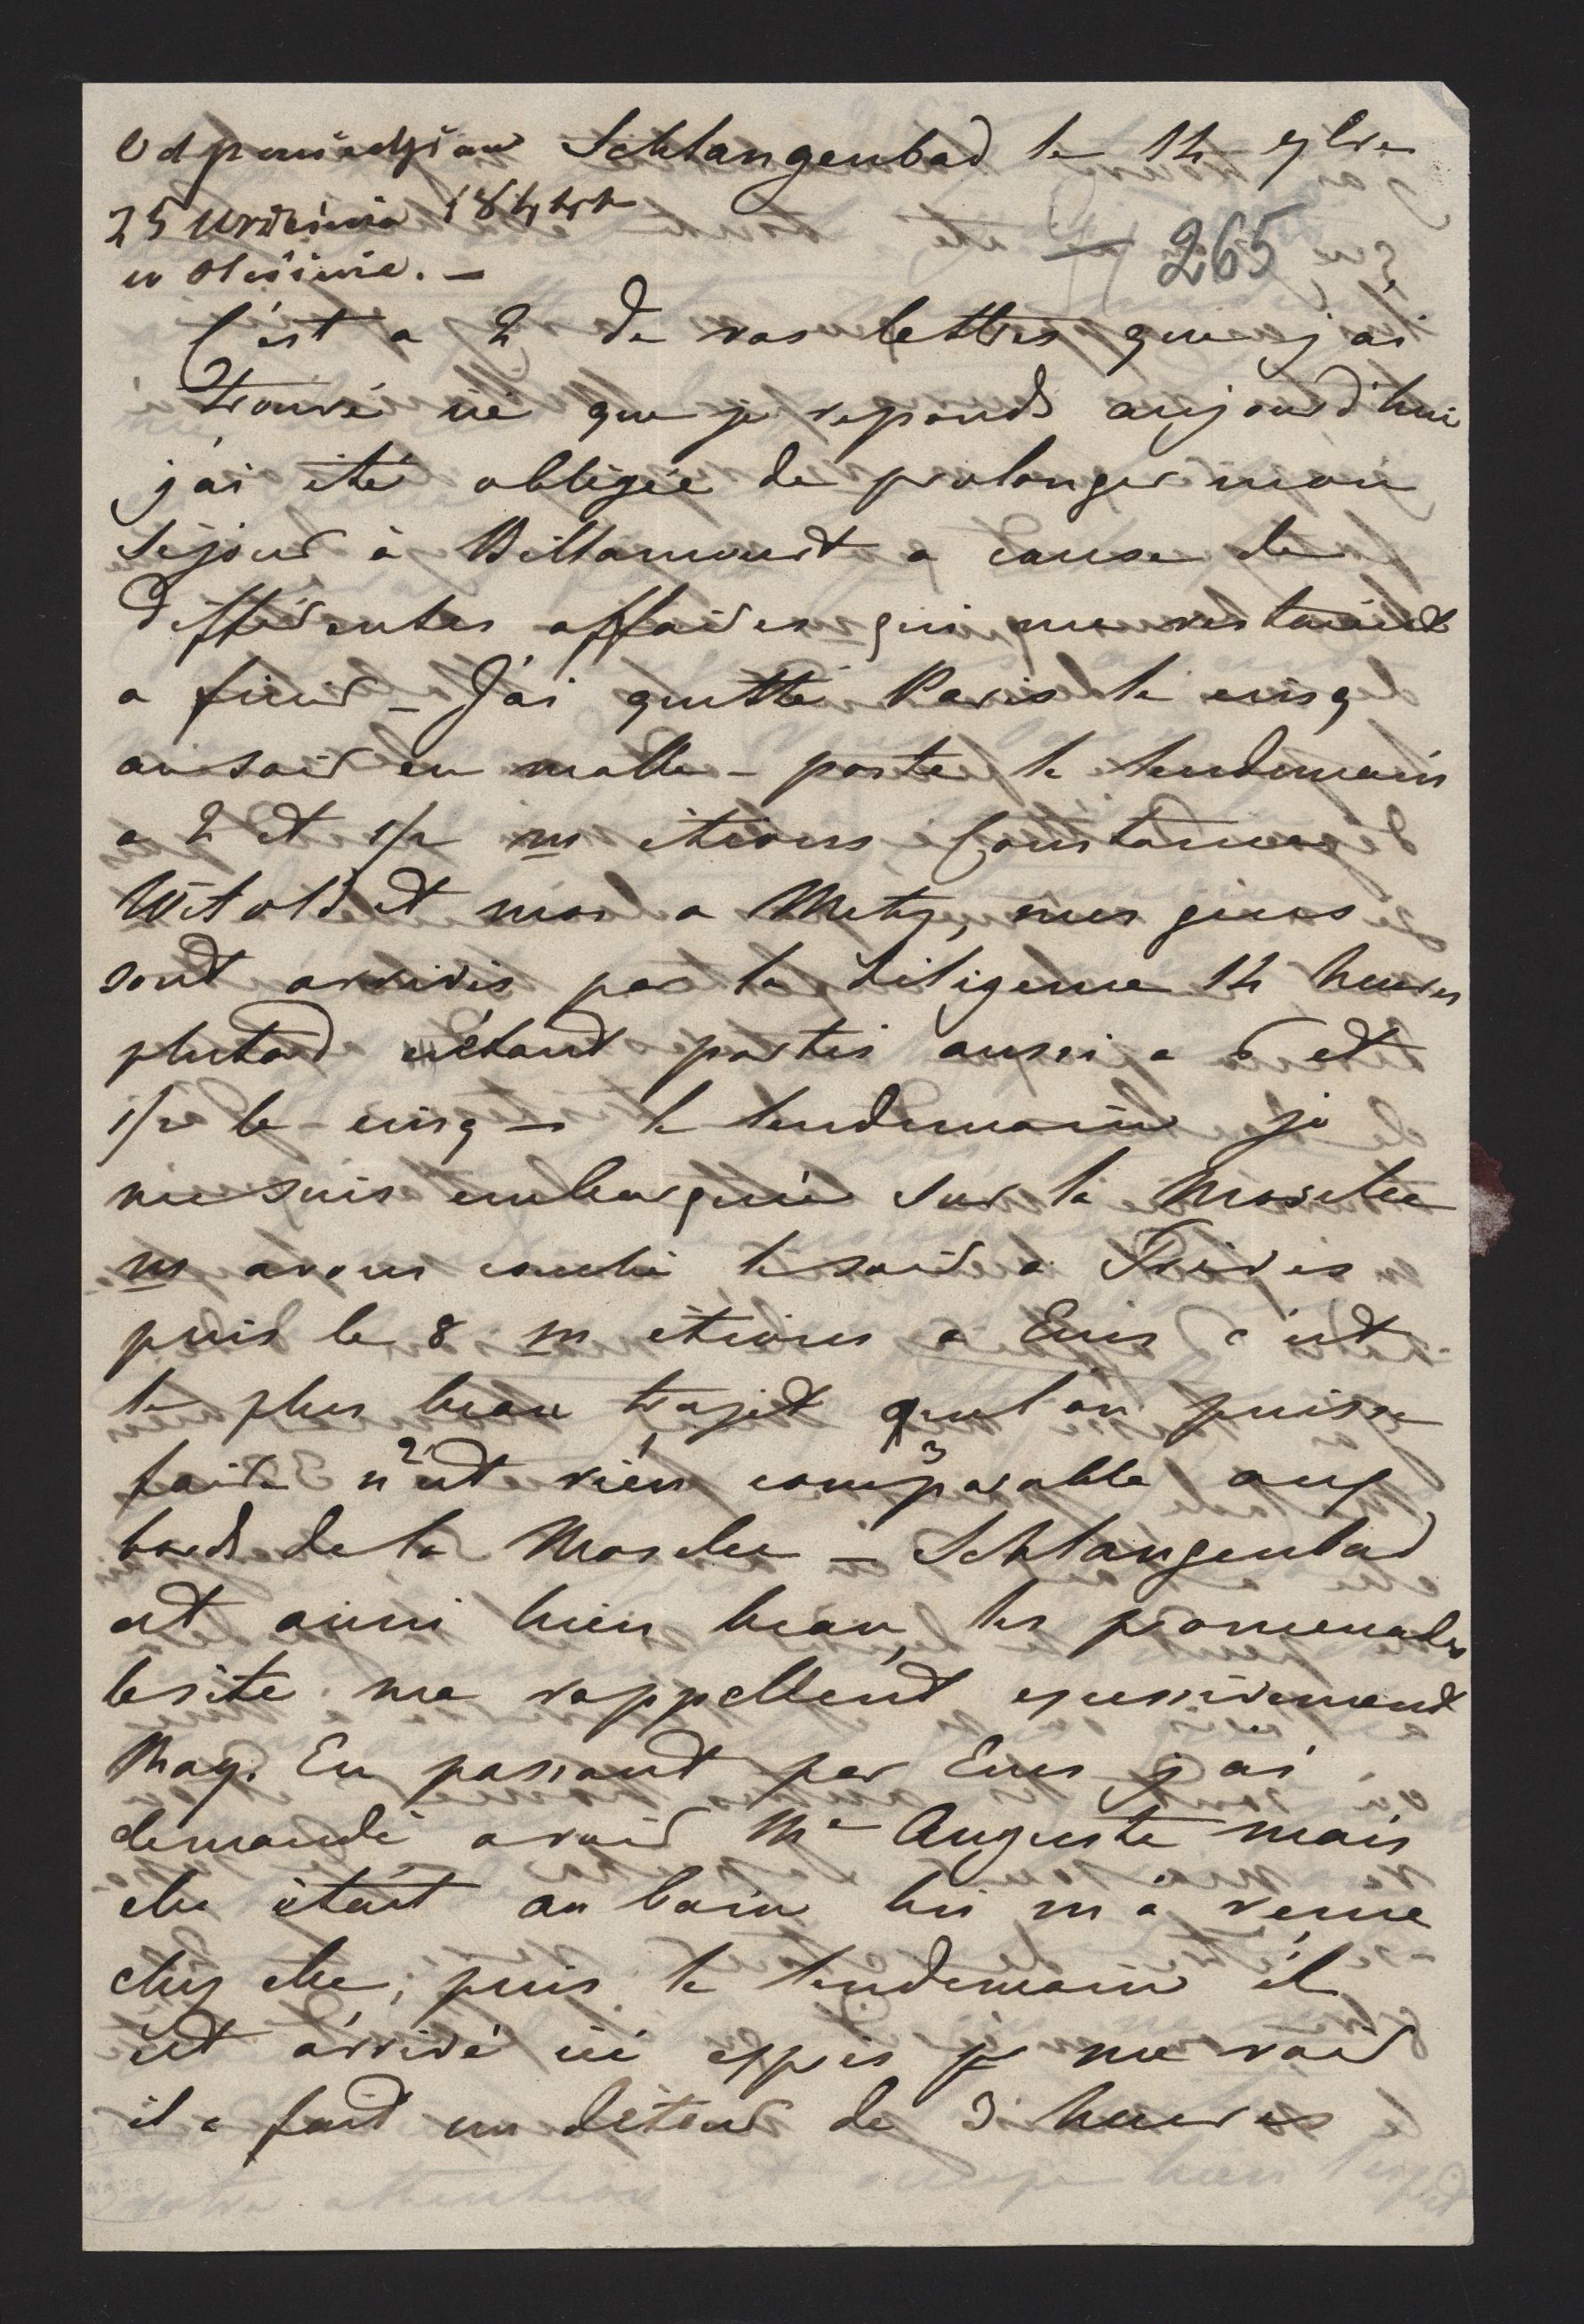 Odpowiedziano Schlangenbad le 12 7bre
25 Września 1844
w Olesinie. —
— 265
C'est a 2 de vos lettres que j'ai
trouvé ici que je reponds aujourd'hui
j'ai été obligée de prolonger mon
séjour à Billancourt a cause de
differentes affaires qui me restaient
a finir — J'ai quitté Paris le cinq
au soir en malle-poste le lendemain
a 2 et 1/2 ns étions Constance
Witold et moi a Metz, mes gens
sont arrivés par la diligence 12 heures
plutard étant partis aussi a 6 et
1/2 le cinq — le lendemain je
me suis embarquée sur la Moselle
ns avons couché le soir a Trèves
puis le 8 ns étions a Ems c'est
le plus beau trajet qu'l'on puisse
faire n'est rien comparable aux
bords de la Moselle — Schlangenbad
est aussi bien beau, les promenades
le site me rappellent excessivement
May. En passant par Ems j'ai
demandé a voir Me Auguste mais
elle était au bain lui m'a
chez elle; puis le lendemain il
est arrivé ici exprès pr me voir
il a fait un détour de 3 heures